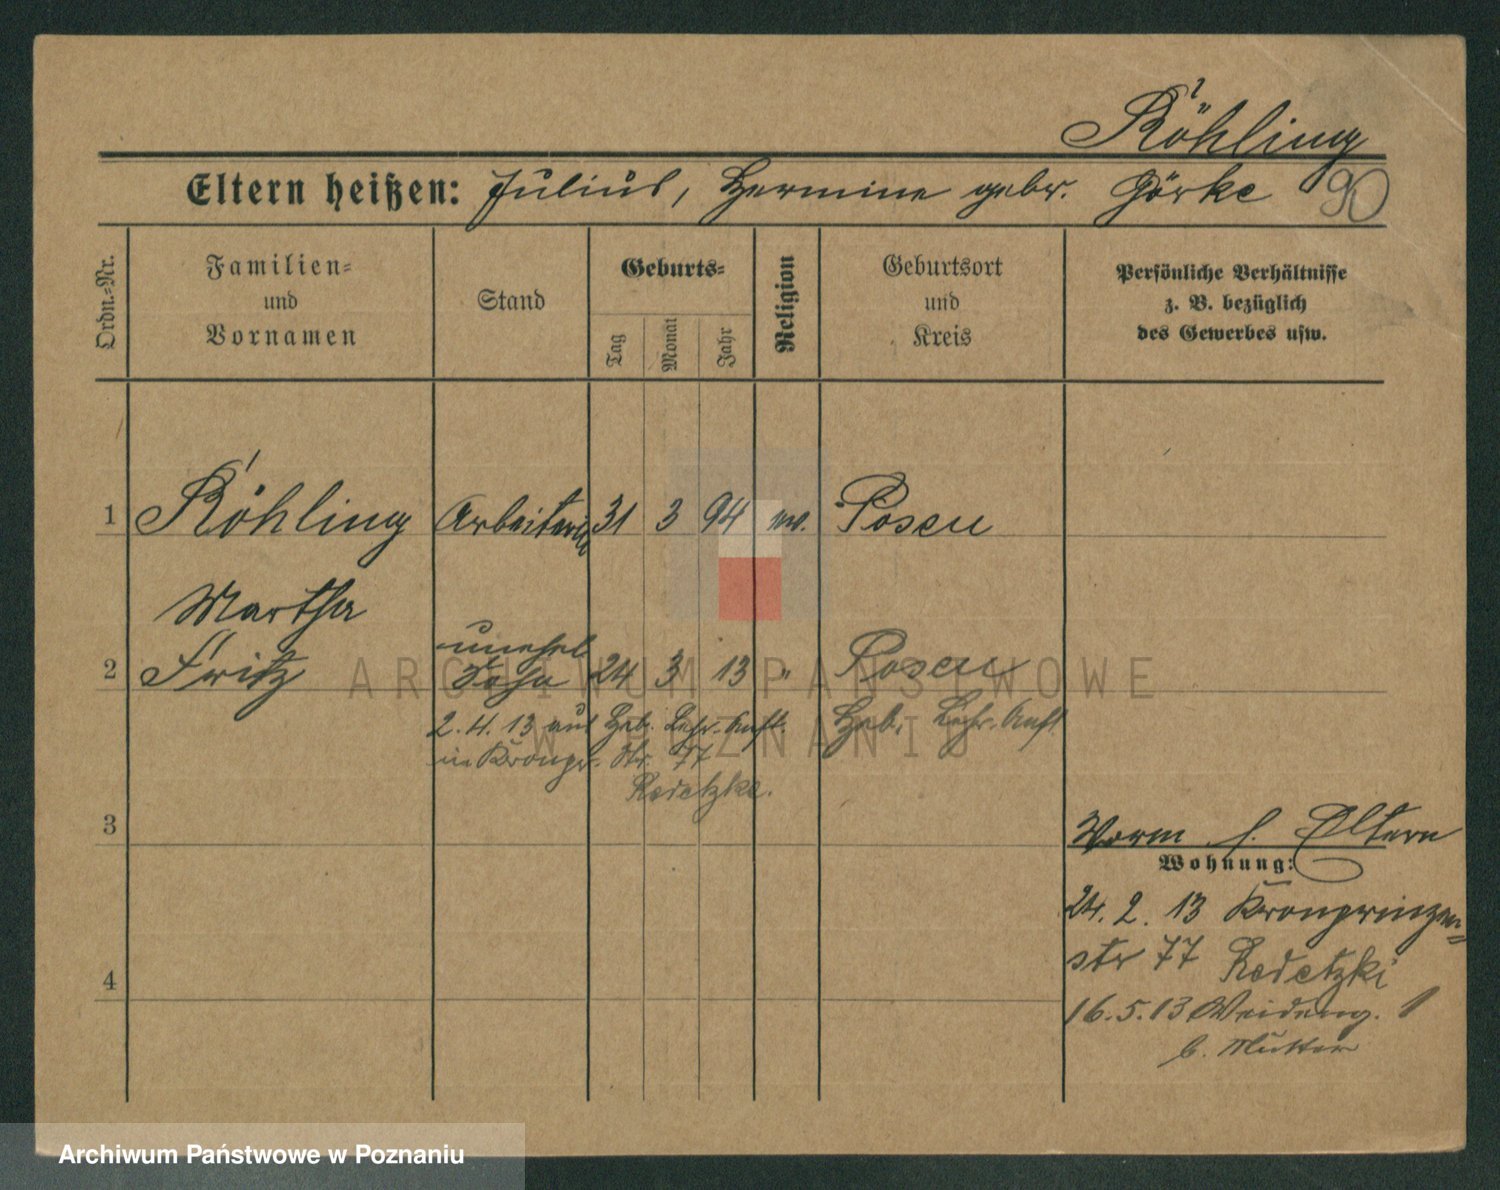 Röhling
Eltern heißen: Julius, Hermine gebr. Görke 90
Ordn.=Nr.
Familien=
und
Vornamen
Stand
Geburts=
Tag
Monat
Jahr
Religion
Geburtsort
und
Kreis
Persönliche Verhältnisse
z. B. bezüglich
des Gewerbes usw.
1 Röhling Arbeiterin 31 3 94 ev. Posen
Martha
2 Fritz unehel Sohn 24 3 13 " Posen
2. 4. 13 aus Heb. Lehr. Anst. Heb. Lehr. Anst
in Kronpr. Str. 77
Redetzke.
3
Worm s. Eltern
Wohnung:
24. 2. 13 Kronprinzen=
str 77 Redetzki
4
16. 5. 13 Weideng. 1
b. Mutter
ARCHIWUM PAŃSTWOWE
W POZNANIU
Archiwum Państwowe w Poznaniu